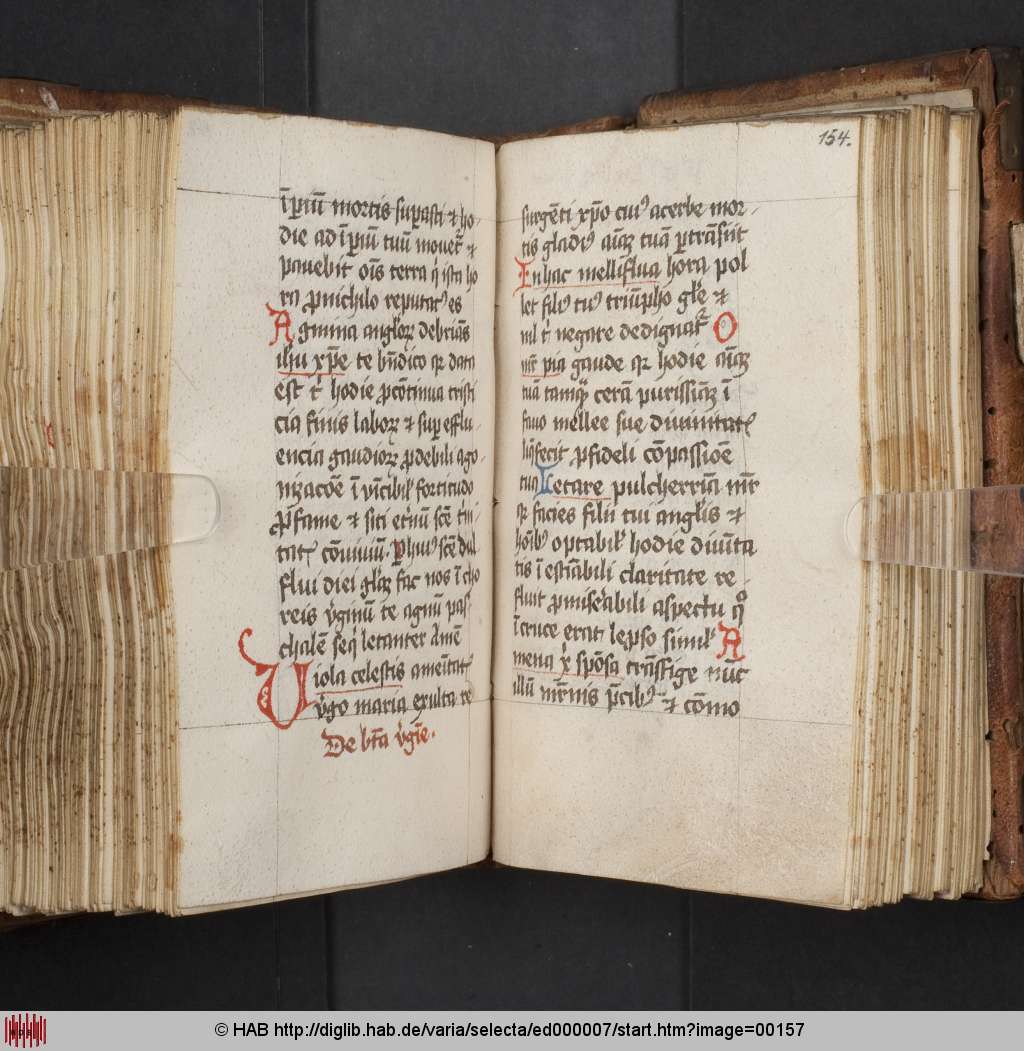 īpiū mortis supasti ⁊ ho
die ad īpiū tuū mouet᷑ ⁊
pauebit oīs terra q̇ ista ho
ra ꝓnichilo reputatꝰ es
Agmina angloꝝ debriās
ihu xp̄e te bn̄dico qꝛ data
est t᷑ hodie ꝓcōtinua tristi
cia finis laboꝝ ⁊ sup efflu
encia gaudioꝝ ꝓdebili ago
nizacōe ī vīcibił fortitudo
ꝓfame ⁊ siti et̄nū scē t̄ni
tatꝭ cōuiuiū. Phuiꝰ scē dul
flui diei gl̄az fac nos ī cho
reis v̇ginū te agnū pas
chalē seq̇ letanter Amē
Uiola celestis amēitatꝭ
v̇go maria exulta re
De bt̄a v̇gīe.
154.
surgēti xp̄o cuiꝰ acerbe mor
tis gladiꝰ aīaꝫ tuā ꝑtrāsiit
In hac melliflua hora pol
let filiꝰ tuꝰ triūpho gl̄e ⁊
nil t᷑ negare dedignat᷑ O
mr̄ pia gaude qꝛ hodie aīaꝫ
tuā tamqꝫ cerā purissimaꝫ ī
fauo mellee sue diuinitatꝭ
fecit ꝓfideli cōpassiōe
tua Letare pulcherria mr̄
qꝛ facies filii tui angl̄is ⁊
hoībꝰ optabił hodie diuita
tis ī estiābili claritate re
fluit ꝓmis̄abili aspectu qº
ī cruce erat lepso simił A
mena xp̄i spōsa trāsfige nūc
illū mr̄nis p̄cibꝰ ⁊ cōmo
© HAB http://diglib.hab.de/varia/selecta/ed000007/start.htm?image=00157